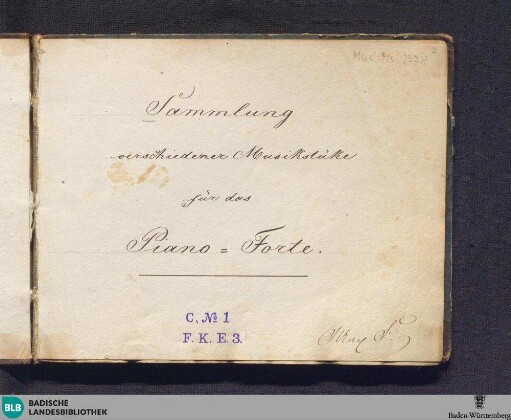 Mus. Hs.
Sammlung
verschiedener Musikstüke
für das
Piano = Forte.
C, № 1
F. K. E. 3.
BLB BADISCHE
LANDESBIBLIOTHEK
Baden-Württemberg